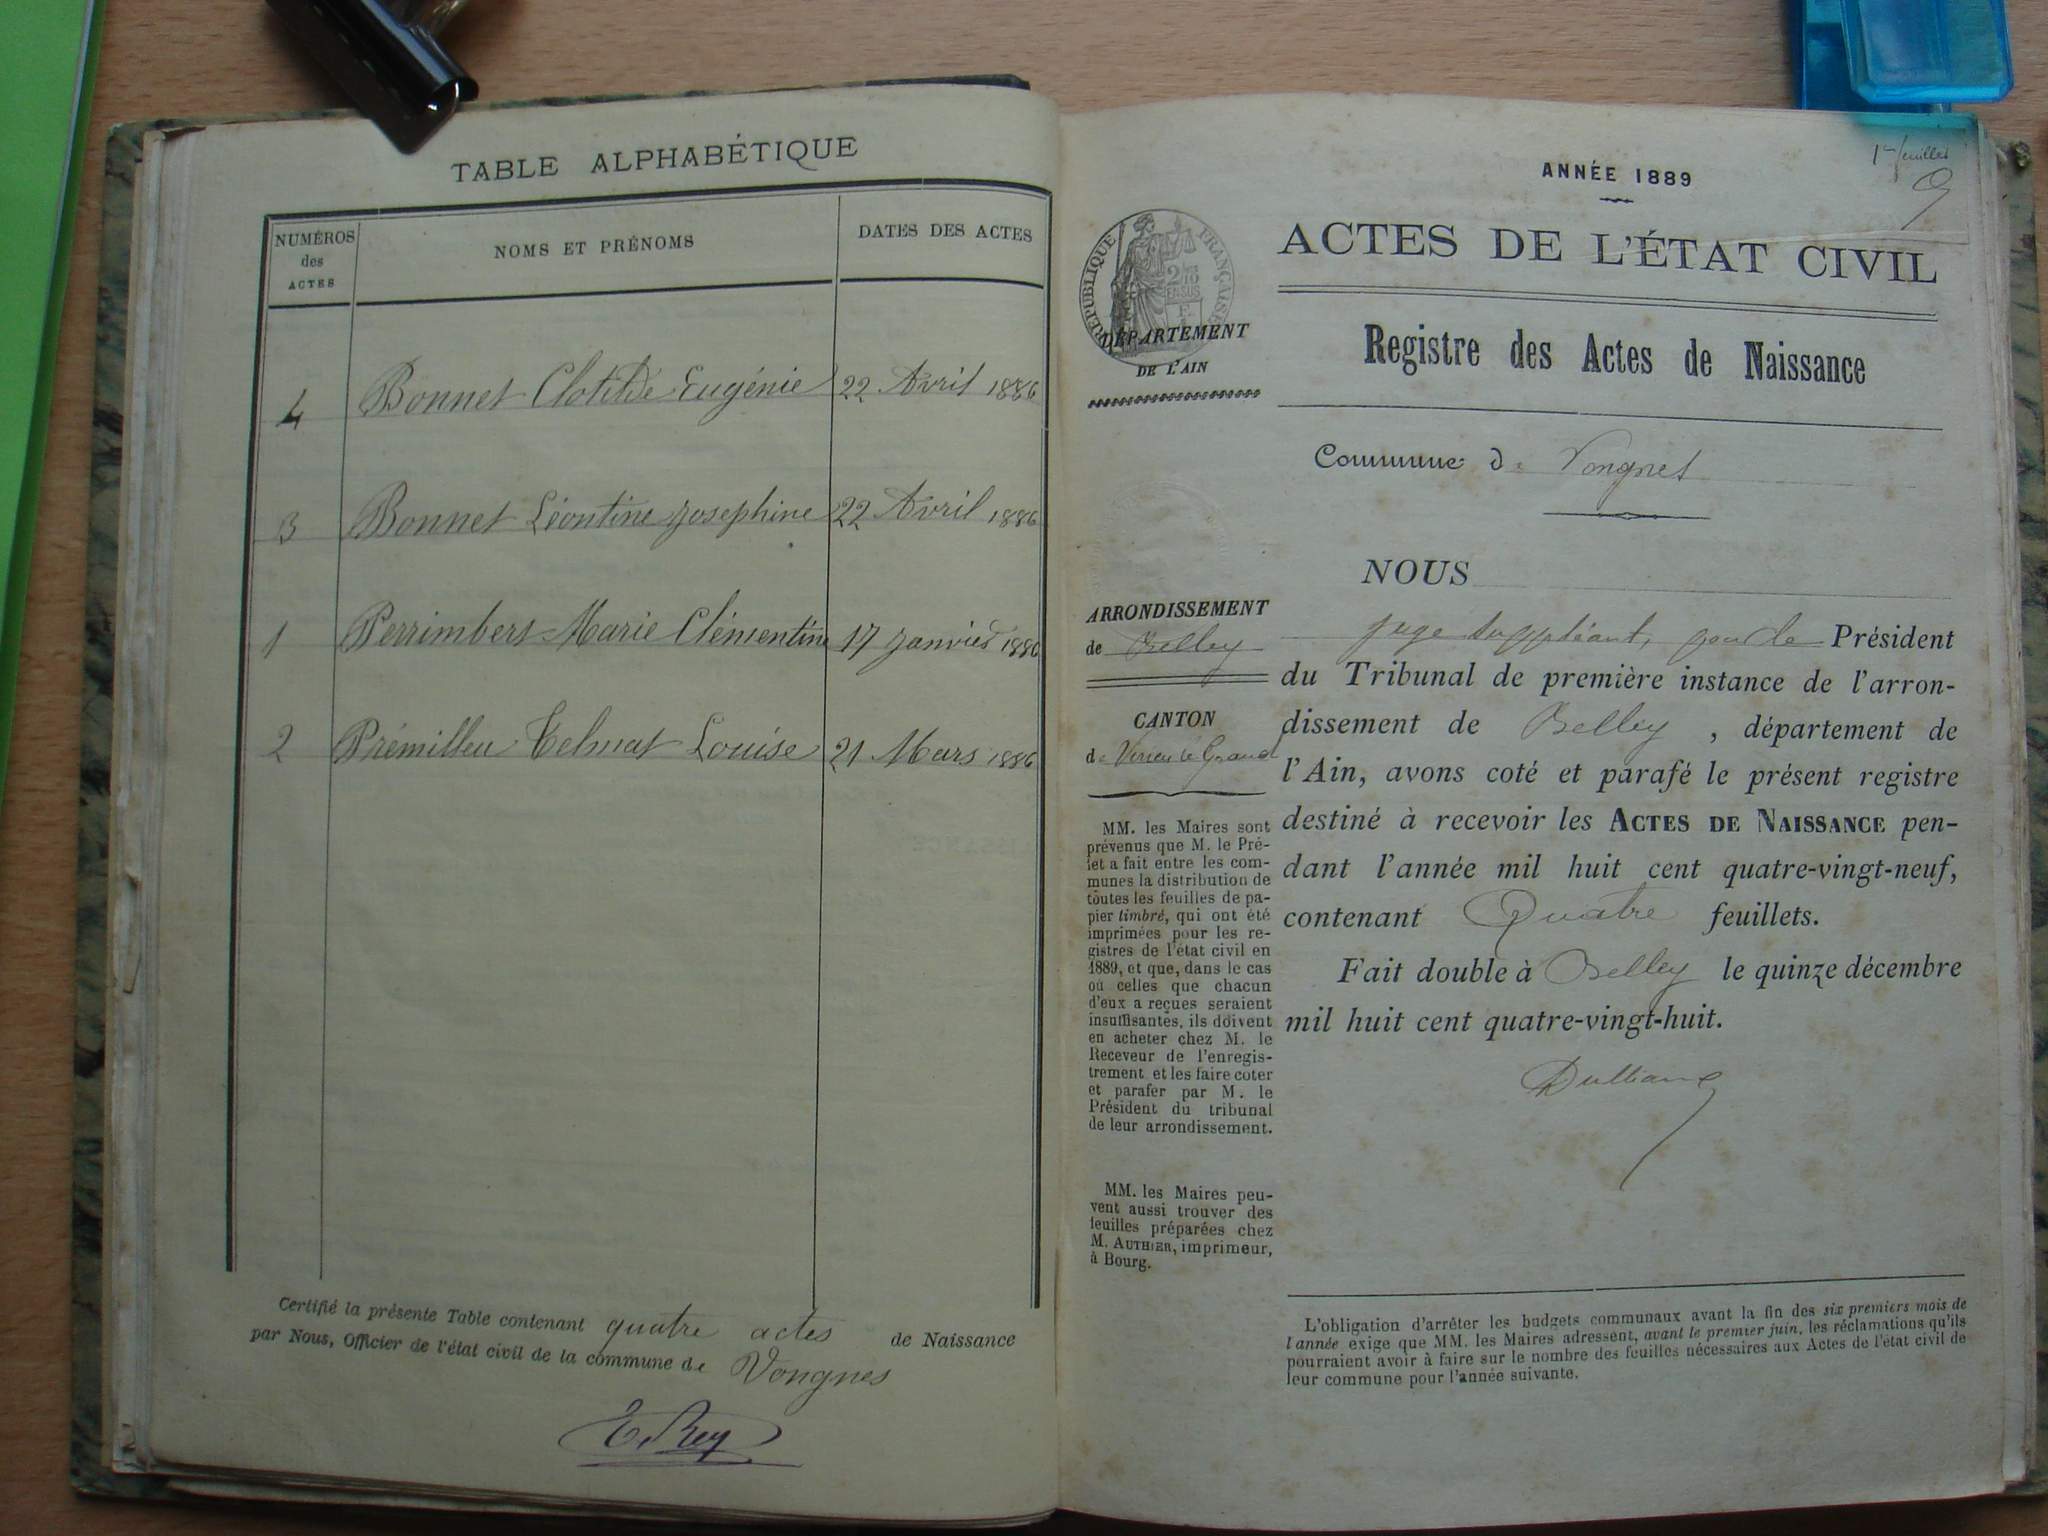 TABLE ALPHABÉTIQUE
NUMÉROS
des
ACTES
NOMS ET PRÉNOMS
DATES DES ACTES
4 Bonnet Clotilde Eugénie 22 Avril 1886
3 Bonnet Léontine Josephine 22 Avril 1886
1 Perrimbert Marie Clémentine 17 Janvier 1886
2 Prémilleu Louise 21 Mars 1886
Certifié la présente Table contenant quatre actes de Naissance
par Nous, Officier de l'état civil de la commune de Vongnes
E. Rey
ANNÉE 1889
ACTES DE L'ÉTAT CIVIL
RÉPUBLIQUE FRANÇAISE
DÉPARTEMENT
DE L'AIN
Registre des Actes de Naissance
Commune de Vongnes
NOUS
ARRONDISSEMENT
de Belley
CANTON
de Virieu le Grand
MM. les Maires sont
prévenus que M. le Pré-
fet a fait entre les com-
munes la distribution de
toutes les feuilles de pa-
pier timbré, qui ont été
imprimées pour les re-
gistres de l'état civil en
1889, et que, dans le cas
où celles que chacun
d'eux a reçues seraient
insuffisantes, ils doivent
en acheter chez M. le
Receveur de l'enregis-
trement et les faire coter
et parafer par M. le
Président du tribunal
de leur arrondissement.
MM. les Maires peu-
vent aussi trouver des
feuilles préparées chez
M. AUTHIER, imprimeur,
à Bourg.
juge suppléant, pour le Président
du Tribunal de première instance de l'arron-
dissement de Belley, département de
l'Ain, avons coté et parafé le présent registre
destiné à recevoir les ACTES DE NAISSANCE pen-
dant l'année mil huit cent quatre-vingt-neuf,
contenant Quatre feuillets.
Fait double à Belley le quinze décembre
mil huit cent quatre-vingt-huit.
L'obligation d'arrêter les budgets communaux avant la fin des six premiers mois de
l'année exige que MM. les Maires adressent, avant le premier juin, les réclamations qu'ils
pourraient avoir à faire sur le nombre des feuilles nécessaires aux Actes de l'état civil de
leur commune pour l'année suivante.